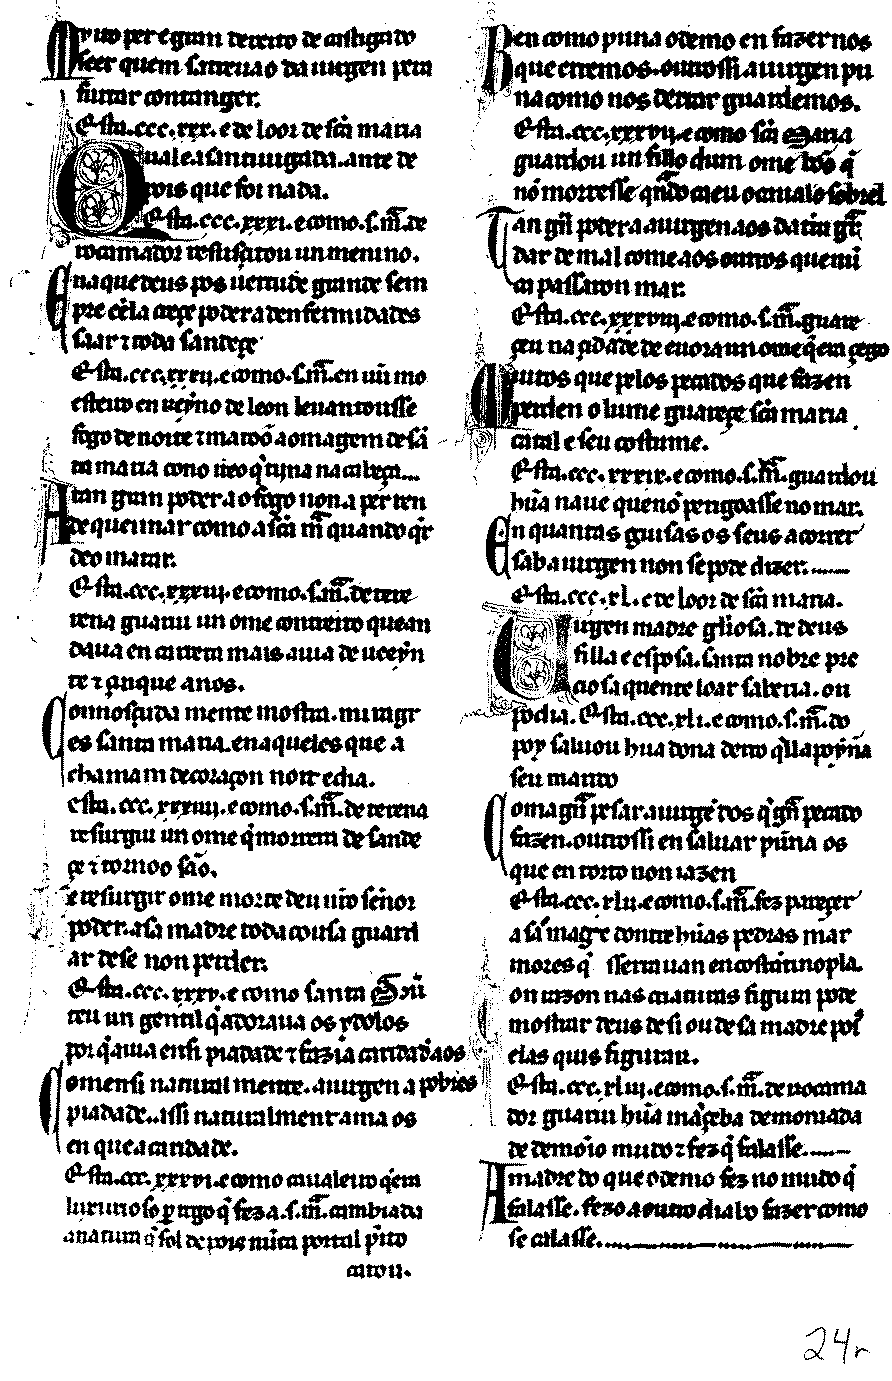 Muito per é gran dereito de castigado
seer quem s atreua o da uirgen pera
furtar contanger.
Esta .ccc.xxx. e de loor de sc̃a maria
Qual e a santiuigada. ante de
pois que foi nada.
Esta .ccc.xxxi. e como .s.m̃. de
rocamador resuscitou un menino.
Ena que deus pos uertude grande sem
pre cẽla creçe poder a denfermidades
sãar ⁊ toda sandeçe
Esta .ccc.xxxij. e como .s.m̃. en un mo
esteiro en reyno de leon leuantousse
fogo de noite ⁊ matoo a omagem de sã
ta maria cono ueo q̇ tijna na cabeça...
Atan gran poder a o fogo non a per ren
de queimar como a sc̃a m̃ quando q̇r
deo matar.
Esta .ccc.xxxiij. e como .s.m̃. de tere
rena guariu un ome contreito que an
daua en carreta mais auia de uccyn
te ⁊ çinque anos.
Connosçuda mente mostra. miragr
es santa maria. en aqueles que a
chamam de coraçon non echa.
esta .ccc.xxxiiij. e como .s.m̃. de terena
resurgiu un ome q̇ morrera de sande
çe ⁊ tornoo são.
e resurgir ome morte deu nr̃o señor
poder. a sa madre toda cousa guard
ar de se non perder.
Esta .ccc.xxxv. e como santa
un gentil q̇ adoraua os ydolos
por q̇ auia ensi piadade ⁊ fazia caridad aos
Comensi natural mente. a uirgen a pobres
piadade. assi naturalment ama os
en que a caridade.
Esta .ccc.xxxvi. e como caualeiro q̇ era
luxurioso rogo q̇ fez a .s.m̃. cambiada
a natura q̇ sol depois nũca por tal p̃ito
catou.
Ben como puna o demo en fazer nos
que erremos. outrossi a uirgen pu
na como nos deitar guardemos.
Esta .ccc.xxxvij. e como sc̃a Maria
guardou un fillo dum ome bõo q̇
nõ morresse q̃ndo caeu o caualo sobrel
Tan gr̃n poder a a uirgen aos da terra gr̃
dar de mal come aos outros que mi
ca passaron mar.
Esta .ccc.xxxviij. e como .s.m̃. guare
çeu na çidade de euora un ome q̇ era çego
Muitos que pelos pecados que fazen
perden o lume guareçe sc̃a maria
ca tal e seu costume.
Esta .ccc.xxxix. e como .s.m̃. guardou
hũa naue que nõ perigoasse no mar.
En quantas guisas os seus acorrer
sab a uirgen non se pode dizer.
Esta .ccc.xl. e de loor de sc̃a maria.
Uirgen madre gl̃iosa. de deus
filla e esposa. santa nobre pre
ciosa quen te loar saberia. ou
podia. Esta .ccc.xli. e como .s.m̃. do
poy saluou hũa dona dũto q̇lla poyña
seu manto
Coma gr̃n pesar. a uirgẽ dos q̇ gr̃n pecado
fazen. outrossi en saluar pũna os
que en torto non iazen
Esta .ccc.xlij. e como .s.m̃. fez pareçer
a sã magẽ dontre hũas pedras mar
mores q̇ sserrauan en costãtinopla.
on razon nas criaturas figura pode
mostrar deus de si ou de sa madre pois
elas quis figurar.
Esta .ccc.xliij. e como .s.m̃. de rocama
dor guariu hũa mãçeba demoniada
de demoio mudo ⁊ fez q̇ falasse.
A madre do que o demo fez no mudo q̇
falasse. fezo a outro diabo fazer como
se calasse.
24r